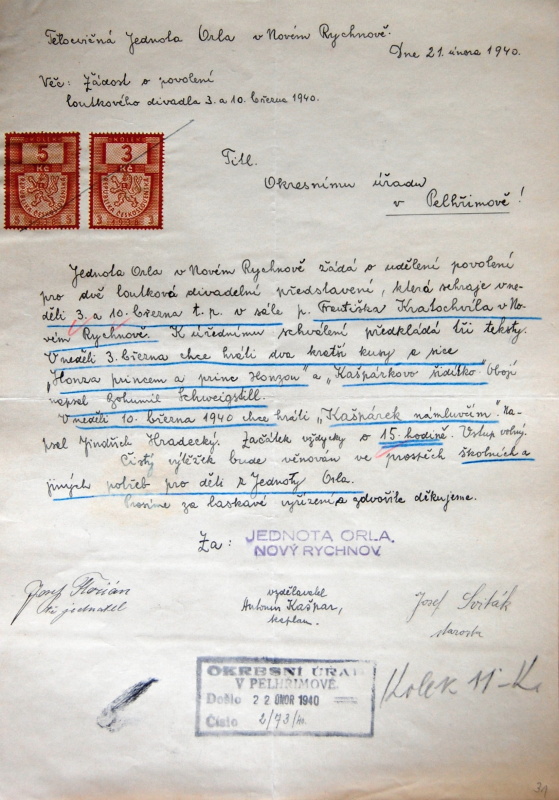 Tělocvičná Jednota Orla v Novém Rychnově.
Dne 21. února 1940.
Věc: Žádost o povolení
loutkového divadla 3. a 10. března 1940.
KOLEK
KOLEK
5
3
Kč
Kč
REPUBLIKA ČESKOSLOVENSKÁ
REPUBLIKA ČESKOSLOVENSKÁ
5 5
3 3
Titl.
Okresnímu úřadu
v Pelhřimově!
Jednota Orla v Novém Rychnově žádá o udělení povolení
pro dvě loutková divadelní představení, která sehraje v ne-
děli 3. a 10. března t. r. v sále p. Františka Kratochvíla v No-
vém Rychnově. K úřednímu schválení předkládá tři texty.
V neděli 3. března chce hráti dva kratší kusy a sice
„Honza princem a princ Honzou" a „Kašpárkovo řidítko" Obojí
napsal Bohumil Schweigstill.
V neděli 10. března 1940 chce hráti „Kašpárek námluvčím". Na-
psal Jindřich Hradecký. Začátek vždycky o 15. hodině. Vstup volný.
Čistý výtěžek bude věnován ve prospěch školních a
jiných potřeb pro děti z Jednoty Orla.
Prosíme za laskavé vyřízení a zdvořile děkujeme.
Za: JEDNOTA ORLA
NOVÝ RYCHNOV.
Josef Florián
jednatel
vzdělavatel
Antonín Kašpar,
kaplan.
Josef Sviták
starosta
OKRESNÍ ÚŘAD
V PELHŘIMOVĚ
Došlo 22 ÚNOR 1940
Číslo 2/73/
Kolek 11 - K
31